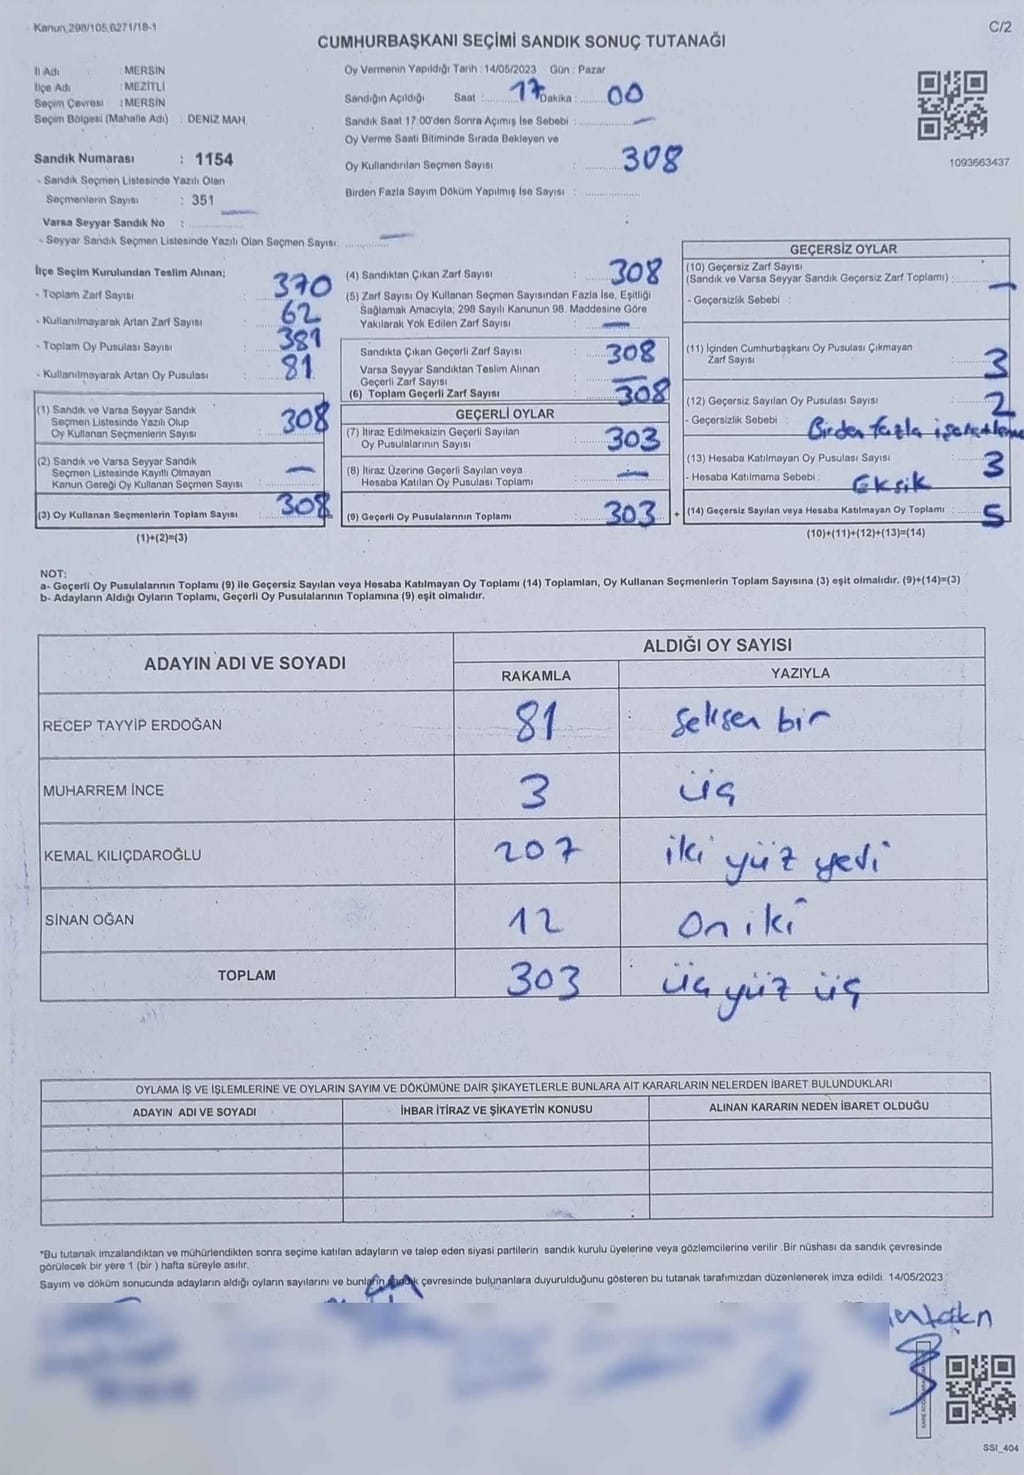 Kanun,298/105,6271/18-1
C/2
CUMHURBAŞKANI SEÇİMİ SANDIK SONUÇ TUTANAĞI
İl Adı : MERSİN
İlçe Adı : MEZİTLİ
Seçim Çevresi : MERSİN
Seçim Bölgesi (Mahalle Adı) : DENİZ MAH.
Sandık Numarası : 1154
- Sandık Seçmen Listesinde Yazılı Olan
Seçmenlerin Sayısı : 351
Varsa Seyyar Sandık No :
- Seyyar Sandık Seçmen Listesinde Yazılı Olan Seçmen Sayısı:
Oy Vermenin Yapıldığı Tarih : 14/05/2023 Gün : Pazar
Sandığın Açıldığı Saat : 17 Dakika : 00
Sandık Saat 17:00'den Sonra Açımış İse Sebebi :
Oy Verme Saati Bitiminde Sırada Bekleyen ve
Oy Kullandırılan Seçmen Sayısı : 308
Birden Fazla Sayım Döküm Yapılmış İse Sayısı :
1093663437
İlçe Seçim Kurulundan Teslim Alınan;
- Toplam Zarf Sayısı : 370
- Kullanılmayarak Artan Zarf Sayısı : 62
- Toplam Oy Pusulası Sayısı : 381
- Kullanılmayarak Artan Oy Pusulası : 81
(1) Sandık ve Varsa Seyyar Sandık
Seçmen Listesinde Yazılı Olup
Oy Kullanan Seçmenlerin Sayısı : 308
(2) Sandık ve Varsa Seyyar Sandık
Seçmen Listesinde Kayıtlı Olmayan
Kanun Gereği Oy Kullanan Seçmen Sayısı : —
(3) Oy Kullanan Seçmenlerin Toplam Sayısı : 308
(1)+(2)=(3)
(4) Sandıktan Çıkan Zarf Sayısı : 308
(5) Zarf Sayısı Oy Kullanan Seçmen Sayısından Fazla İse, Eşitliği
Sağlamak Amacıyla; 298 Sayılı Kanunun 98. Maddesine Göre
Yakılarak Yok Edilen Zarf Sayısı : —
Sandıkta Çıkan Geçerli Zarf Sayısı : 308
Varsa Seyyar Sandıktan Teslim Alınan
Geçerli Zarf Sayısı : —
(6) Toplam Geçerli Zarf Sayısı : 308
GEÇERLİ OYLAR
(7) İtiraz Edilmeksizin Geçerli Sayılan
Oy Pusulalarının Sayısı : 303
(8) İtiraz Üzerine Geçerli Sayılan veya
Hesaba Katılan Oy Pusulası Toplamı : —
(9) Geçerli Oy Pusulalarının Toplamı : 303
+
GEÇERSİZ OYLAR
(10) Geçersiz Zarf Sayısı
(Sandık ve Varsa Seyyar Sandık Geçersiz Zarf Toplamı) : —
- Geçersizlik Sebebi :
(11) İçinden Cumhurbaşkanı Oy Pusulası Çıkmayan
Zarf Sayısı : 3
(12) Geçersiz Sayılan Oy Pusulası Sayısı : 2
- Geçersizlik Sebebi : Birden fazla işaretleme
(13) Hesaba Katılmayan Oy Pusulası Sayısı : 3
- Hesaba Katılmama Sebebi : Eksik
(14) Geçersiz Sayılan veya Hesaba Katılmayan Oy Toplamı : 5
(10)+(11)+(12)+(13)=(14)
NOT:
a- Geçerli Oy Pusulalarının Toplamı (9) ile Geçersiz Sayılan veya Hesaba Katılmayan Oy Toplamı (14) Toplamları, Oy Kullanan Seçmenlerin Toplam Sayısına (3) eşit olmalıdır. (9)+(14)=(3)
b- Adayların Aldığı Oyların Toplamı, Geçerli Oy Pusulalarının Toplamına (9) eşit olmalıdır.
ADAYIN ADI VE SOYADI
ALDIĞI OY SAYISI
RAKAMLA YAZIYLA
RECEP TAYYİP ERDOĞAN 81 seksen bir
MUHARREM İNCE 3 üç
KEMAL KILIÇDAROĞLU 207 iki yüz yedi
SİNAN OĞAN 12 On iki
TOPLAM 303 üç yüz üç
OYLAMA İŞ VE İŞLEMLERİNE VE OYLARIN SAYIM VE DÖKÜMÜNE DAİR ŞİKAYETLERLE BUNLARA AİT KARARLARIN NELERDEN İBARET BULUNDUKLARI
ADAYIN ADI VE SOYADI İHBAR İTİRAZ VE ŞİKAYETİN KONUSU ALINAN KARARIN NEDEN İBARET OLDUĞU
*Bu tutanak imzalandıktan ve mühürlendikten sonra seçime katılan adayların ve talep eden siyasi partilerin sandık kurulu üyelerine veya gözlemcilerine verilir .Bir nüshası da sandık çevresinde
görülecek bir yere 1 (bir ) hafta süreyle asılır.
Sayım ve döküm sonucunda adayların aldığı oyların sayılarını ve bunların sandık çevresinde bulunanlara duyurulduğunu gösteren bu tutanak tarafımızdan düzenlenerek imza edildi. 14/05/2023
SSI_404